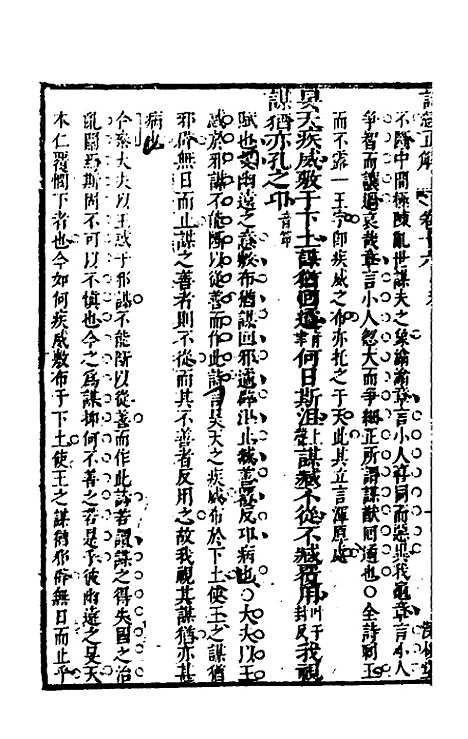 詩經正解 卷十六
不臨中間極陳亂世謀夫之象潝潝章言小人詳同而惡異我龜章言小人
爭智而讓過哀哉章言小人忽大而爭細正所謂謀猷回遹也○全詩刺王
而不露一王字即疾威之布亦托之于天此其立言渾厚處
旻天疾威敷于下土謀猶回遹何日斯沮謀臧不從不臧覆用我視
謀猶亦孔之邛
賦也旻幽遠之意敷布猶謀回邪遹辟沮止臧善覆反邛病也○大夫以王
惑於邪謀不能斷以從善而作此詩言旻天之疾威布於下土使王之謀猶
邪僻無日而止謀之善者則不從而其不善者反用之故我視其謀猶亦甚
病也
合參大夫以王惑于邪謀不能斷以從善而作此詩若謂謀之得失國之治
亂關焉斯固不可以不慎也今之為謀抑何不善之若是乎彼幽遠之旻天
本仁覆憫下者也今如何疾威敷布于下土使王之謀猶邪僻無日而止乎